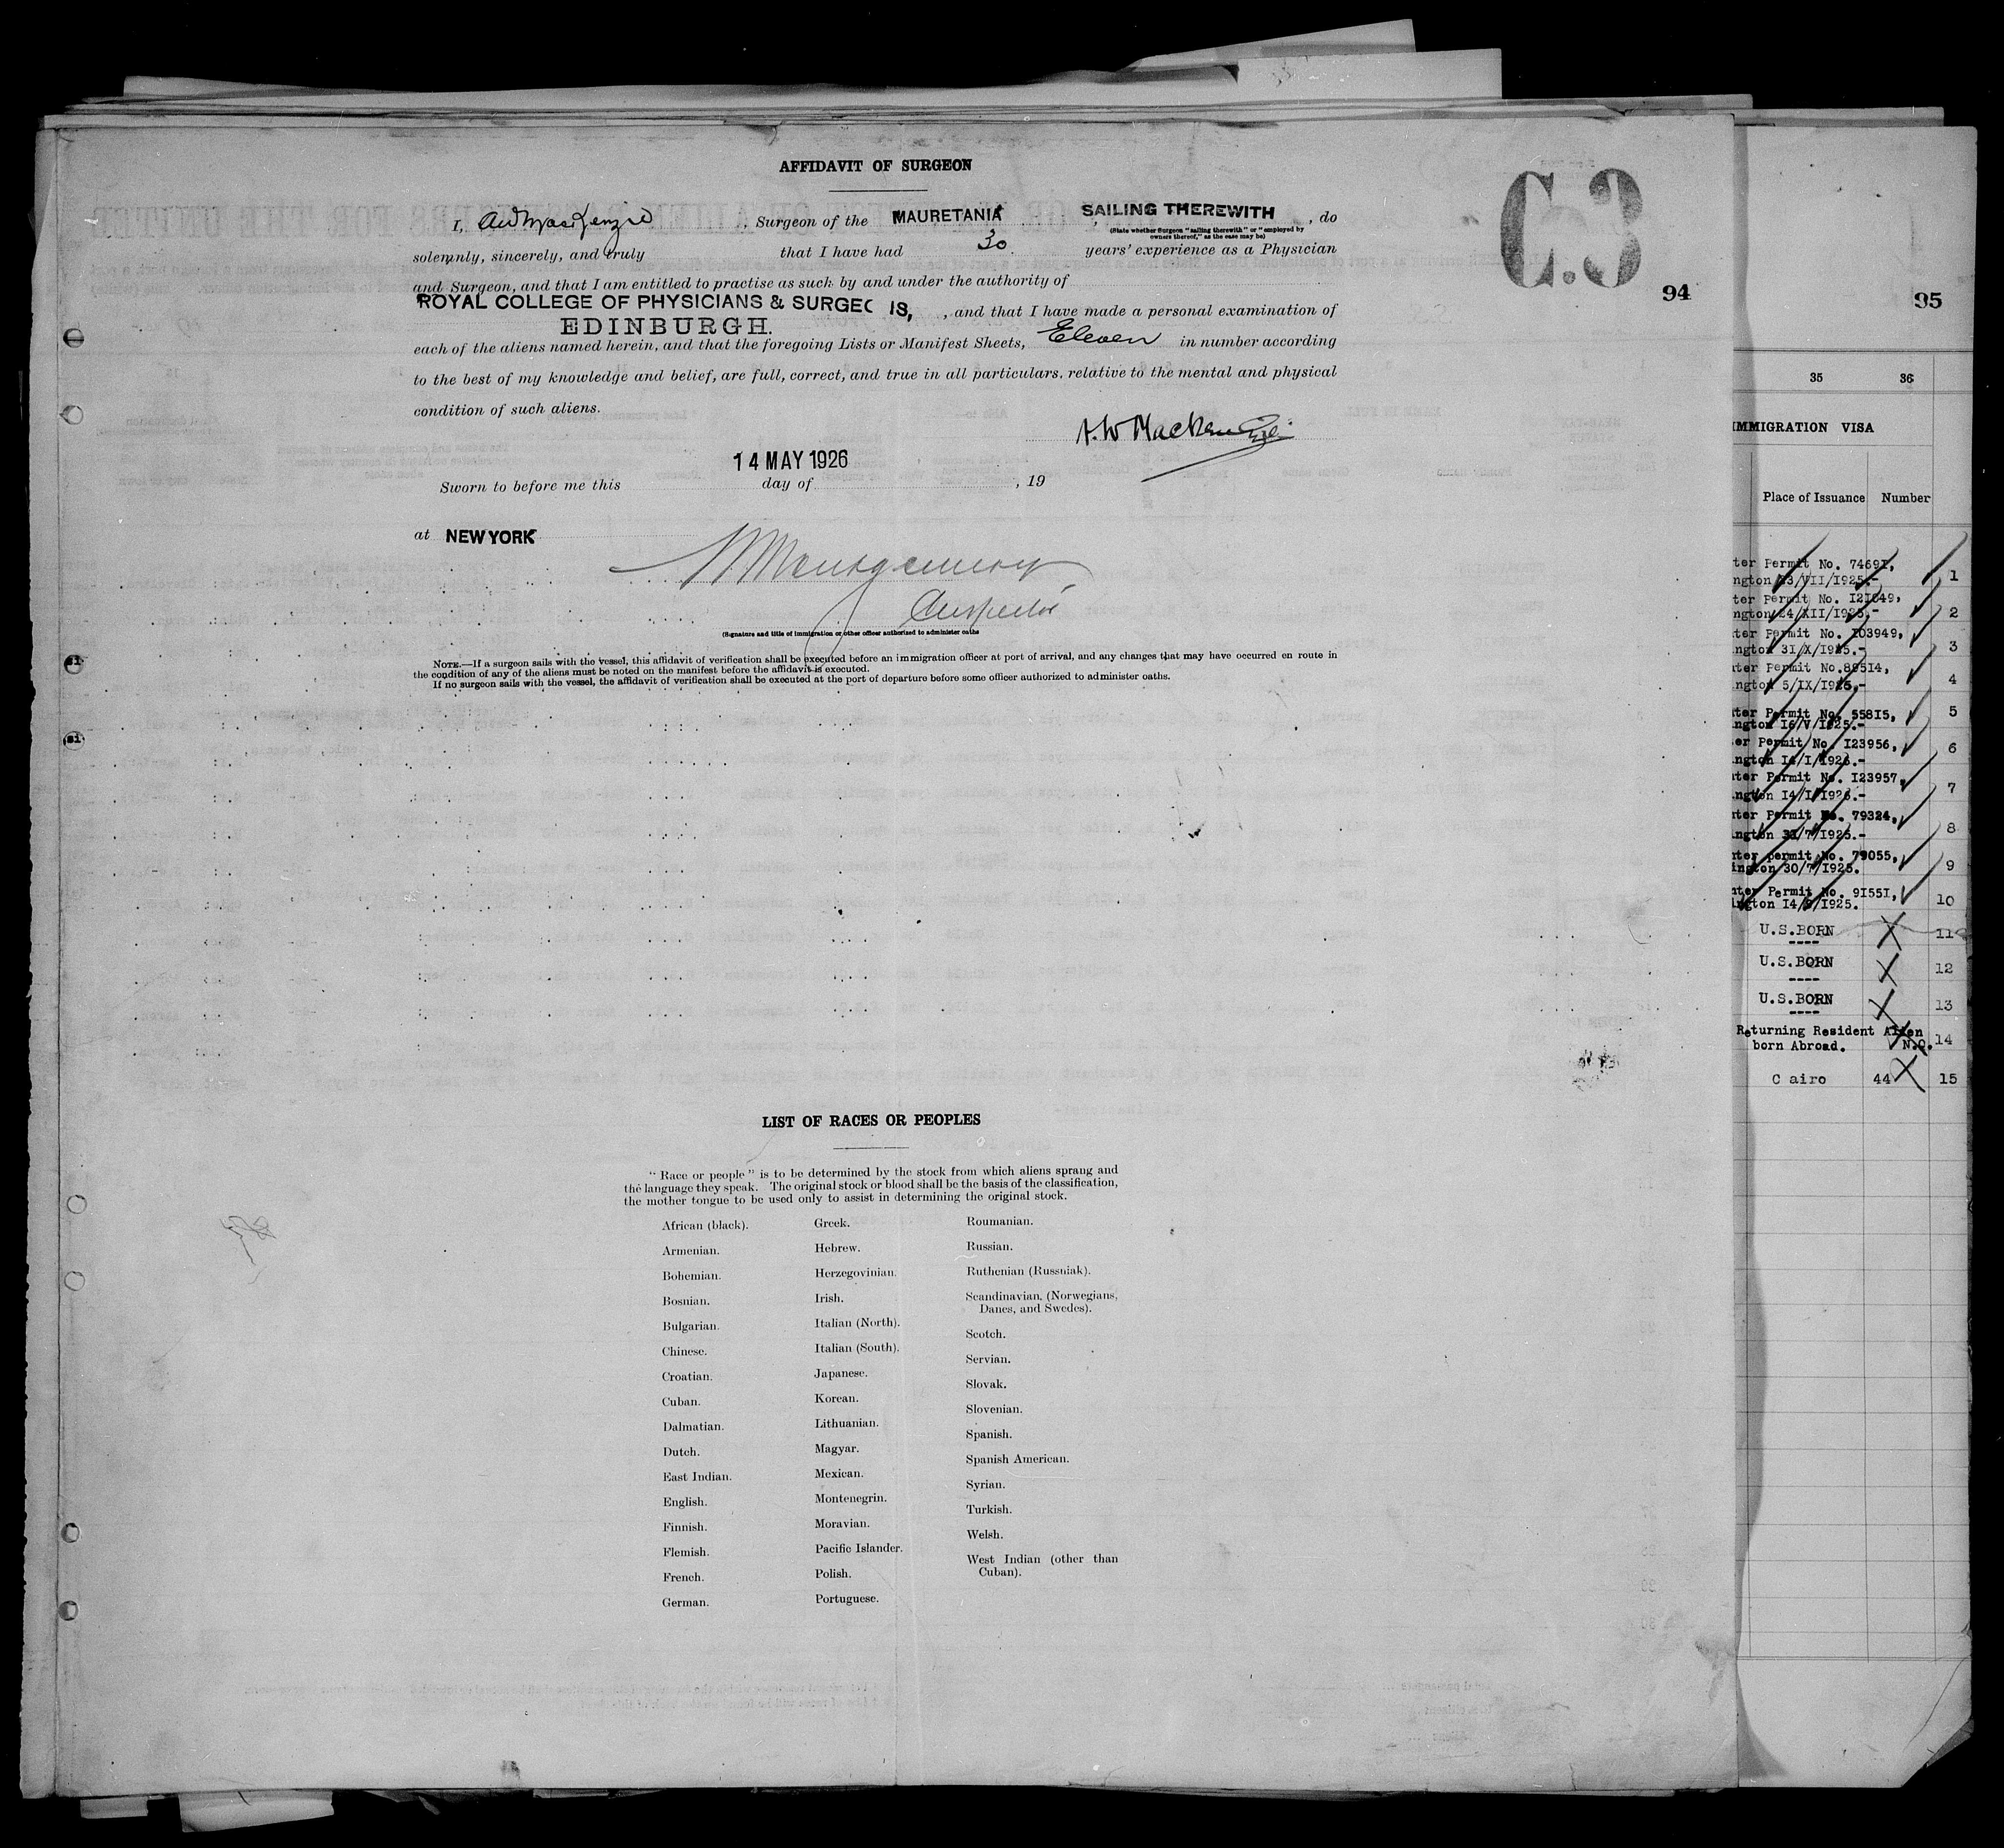 AFFIDAVIT OF SURGEON
C.3
94
I, A W MacKenzie, Surgeon of the MAURETANIA SAILING THEREWITH, do
(State whether Surgeon "sailing therewith" or "employed by
owners thereof," as the case may be)
solemnly, sincerely, and truly that I have had 30 years' experience as a Physician
and Surgeon, and that I am entitled to practise as such by and under the authority of
ROYAL COLLEGE OF PHYSICIANS & SURGEO IS, , and that I have made a personal examination of
EDINBURGH.
each of the aliens named herein, and that the foregoing Lists or Manifest Sheets, Eleven in number according
to the best of my knowledge and belief, are full, correct, and true in all particulars, relative to the mental and physical
condition of such aliens.
A. W MacKenzie
14 MAY 1926
Sworn to before me this day of , 19
at NEW YORK
Montgomery
Inspector
(Signature and title of immigration or other officer authorized to administer oaths
NOTE.—If a surgeon sails with the vessel, this affidavit of verification shall be executed before an immigration officer at port of arrival, and any changes that may have occurred en route in
the condition of any of the aliens must be noted on the manifest before the affidavit is executed.
If no surgeon sails with the vessel, the affidavit of verification shall be executed at the port of departure before some officer authorized to administer oaths.
LIST OF RACES OR PEOPLES
"Race or people" is to be determined by the stock from which aliens sprang and
the language they speak. The original stock or blood shall be the basis of the classification,
the mother tongue to be used only to assist in determining the original stock.
African (black).
Armenian.
Bohemian.
Bosnian.
Bulgarian.
Chinese.
Croatian.
Cuban.
Dalmatian.
Dutch.
East Indian.
English.
Finnish.
Flemish.
French.
German.
Greek.
Hebrew.
Herzegovinian.
Irish.
Italian (North).
Italian (South).
Japanese.
Korean.
Lithuanian.
Magyar.
Mexican.
Montenegrin.
Moravian.
Pacific Islander.
Polish.
Portuguese.
Roumanian.
Russian.
Ruthenian (Russniak).
Scandinavian. (Norwegians,
Danes, and Swedes).
Scotch.
Servian.
Slovak.
Slovenian.
Spanish.
Spanish American.
Syrian.
Turkish.
Welsh.
West Indian (other than
Cuban).
95
35 36
IMMIGRATION VISA
Place of Issuance Number
ter Permit No. 74691,
ngton 13/VII/1925.- 1
ter Permit No. I21649,
ngton 24/XII/1925.- 2
ter Permit No. I03949,
ngton 31/X/1925.- 3
ter Permit No.89514,
ngton 5/IX/1925.- 4
ter Permit No. 55815, 5
ngton 16/V/1925.-
er Permit No. I23956, 6
ngton I4/I/1926.-
ter Permit No. I23957,
ngton I4/I/1926.- 7
ter Permit No. 79324, 8
ngton 31/7/1925.-
ter permit No. 79055,
ington 30/7/1925. 9
ter Permit No. 91551, 10
ngton I4/9/1925.
U.S.BORN 11
U.S.BORN 12
U.S.BORN 13
Returning Resident Alien 14
born Abroad. N.Q.
Cairo 44 15